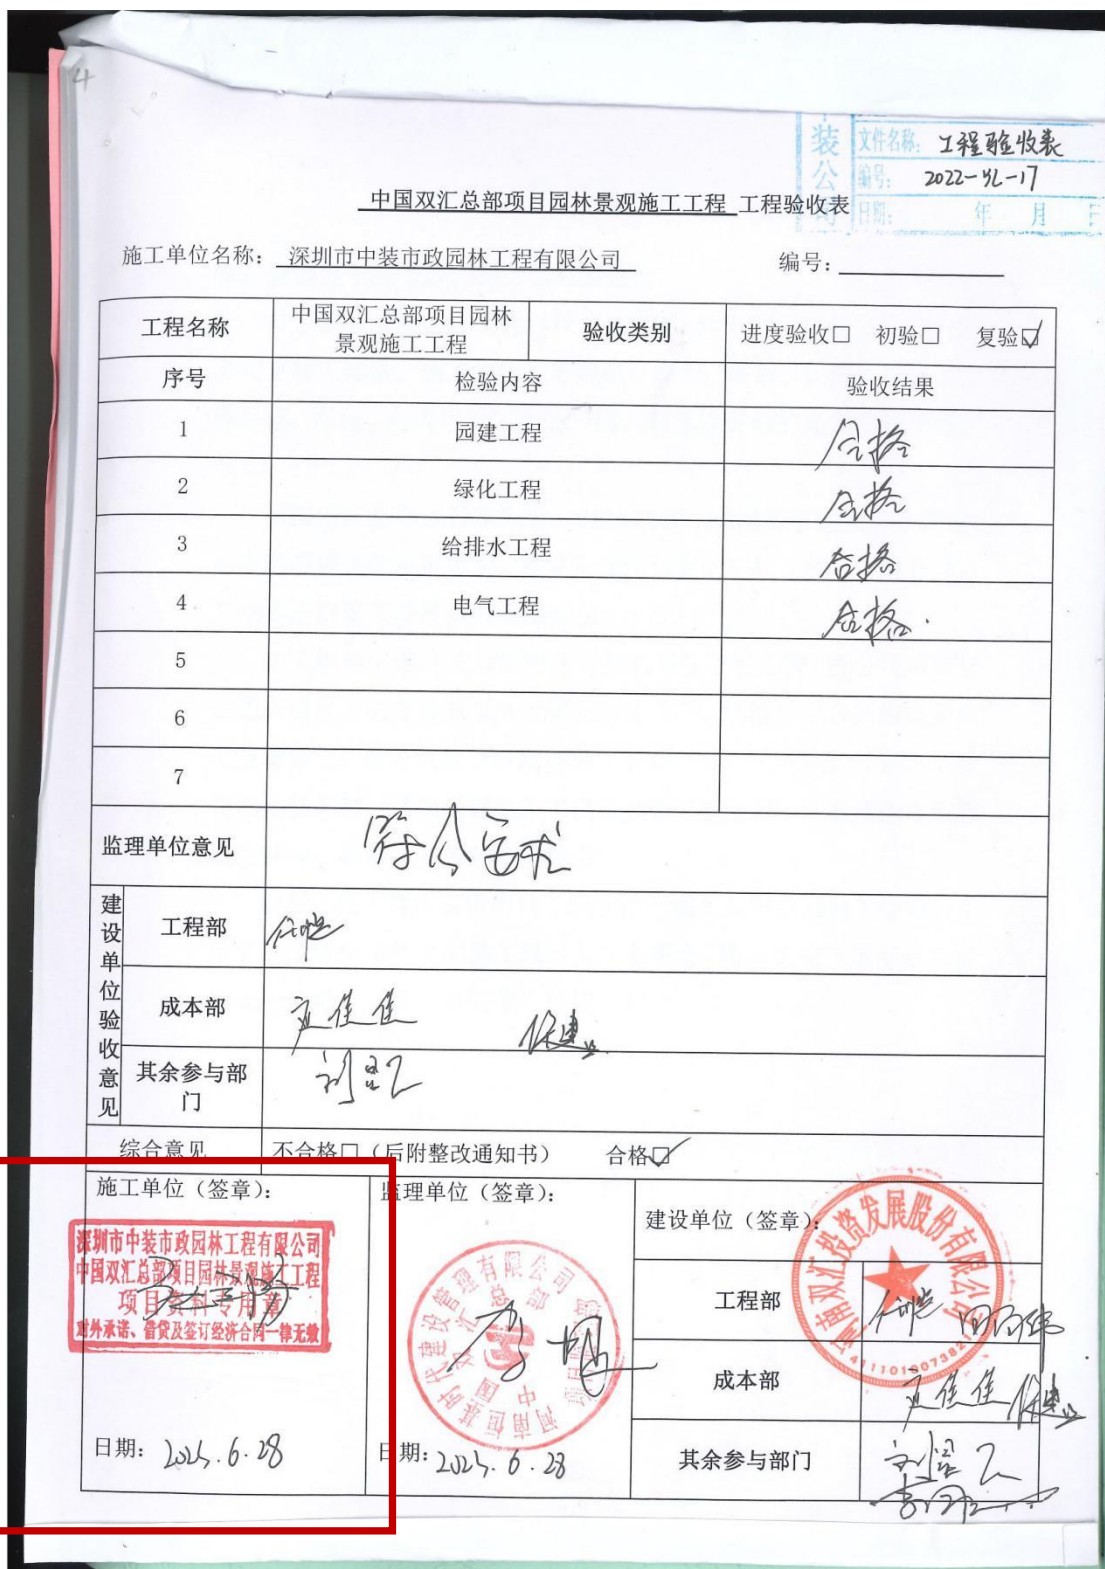 4
装公司
文件名称: 工程验收表
编号: 2022-YL-17
日期: 年 月 日
中国双汇总部项目园林景观施工工程 工程验收表
施工单位名称: 深圳市中装市政园林工程有限公司 编号:
工程名称 中国双汇总部项目园林景观施工工程 验收类别 进度验收□ 初验□ 复验☑
序号 检验内容 验收结果
1 园建工程 合格
2 绿化工程 合格
3 给排水工程 合格
4 电气工程 合格.
5
6
7
监理单位意见 符合要求
建设单位验收意见
工程部
成本部
其余参与部门
综合意见 不合格□（后附整改通知书） 合格☑
施工单位（签章）: 监理单位（签章）: 建设单位（签章）:
深圳市中装市政园林工程有限公司
中国双汇总部项目园林景观施工工程
项目资料专用章
对外承诺、借贷及签订经济合同一律无效
河南恒基时代建设管理有限公司
中国双汇总部
河南双汇投资发展股份有限公司
工程部
成本部
其余参与部门
日期: 2025.6.28 日期: 2025.6.28